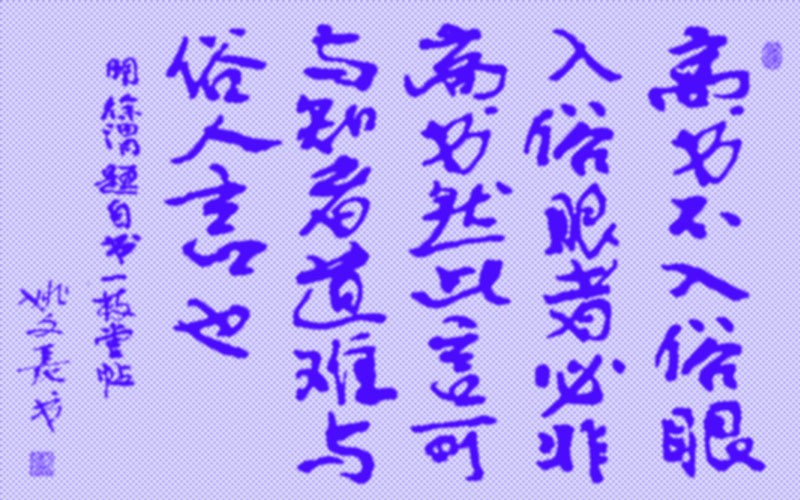 高书不入俗眼
入俗眼者必非
高书然此言可
与知者道难与
俗人言也
明徐渭题自书一枝堂帖
姚文長书